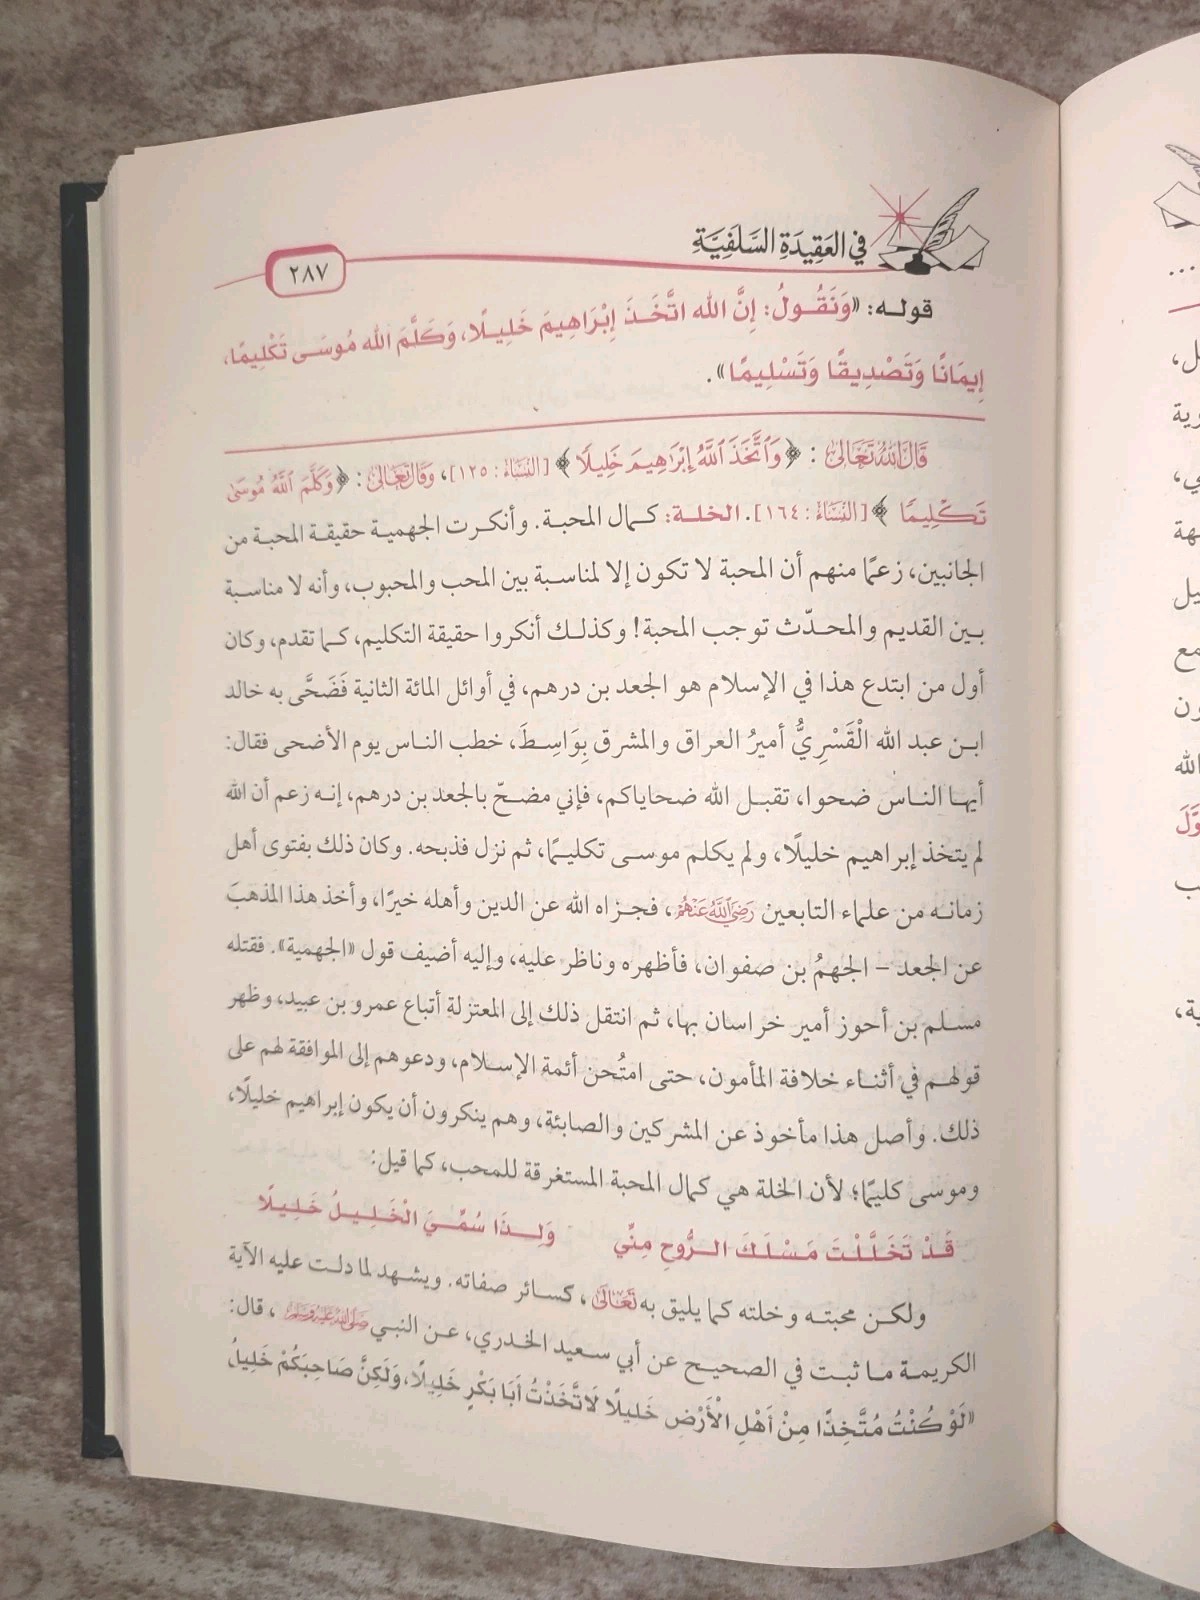 في العَقِيدَةِ السَّلَفِيَّةِ
٢٨٧
قوله: «وَنَقُولُ: إِنَّ الله اتَّخَذَ إِبْرَاهِيمَ خَلِيلًا، وَكَلَّمَ الله مُوسَى تَكْلِيمًا،
إِيمَانًا وَتَصْدِيقًا وَتَسْلِيمًا».
قَالَ اللهُ تَعَالَى : ﴿وَٱتَّخَذَ ٱللَّهُ إِبْرَٰهِيمَ خَلِيلًا﴾ [النِّسَاءُ: ١٢٥]، وَقَالَ تَعَالَى : ﴿وَكَلَّمَ ٱللَّهُ مُوسَىٰ
تَكْلِيمًا﴾ [النِّسَاءُ: ١٦٤]. الخلة: كمال المحبة. وأنكرت الجهمية حقيقة المحبة من
الجانبين، زعمًا منهم أن المحبة لا تكون إلا لمناسبة بين المحب والمحبوب، وأنه لا مناسبة
بين القديم والمحدّث توجب المحبة! وكذلك أنكروا حقيقة التكليم، كما تقدم، وكان
أول من ابتدع هذا في الإسلام هو الجعد بن درهم، في أوائل المائة الثانية فَضَحَّى به خالد
ابن عبد الله الْقَسْرِيُّ أميرُ العراق والمشرق بِوَاسِطَ، خطب الناس يوم الأضحى فقال:
أيها الناس ضحوا، تقبل الله ضحاياكم، فإني مضحّ بالجعد بن درهم، إنه زعم أن الله
لم يتخذ إبراهيم خليلًا، ولم يكلم موسى تكليمًا، ثم نزل فذبحه. وكان ذلك بفتوى أهل
زمانه من علماء التابعين رَضِيَ اللَّهُ عَنْهُمْ، فجزاه الله عن الدين وأهله خيرًا، وأخذ هذا المذهبَ
عن الجعد – الجهمُ بن صفوان، فأظهره وناظر عليه، وإليه أضيف قول «الجهمية». فقتله
مسلم بن أحوز أمير خراسان بها، ثم انتقل ذلك إلى المعتزلة أتباع عمرو بن عبيد، وظهر
قولهم في أثناء خلافة المأمون، حتى امتُحن أئمة الإسلام، ودعوهم إلى الموافقة لهم على
ذلك. وأصل هذا مأخوذ عن المشركين والصابئة، وهم ينكرون أن يكون إبراهيم خليلًا،
وموسى كليمًا؛ لأن الخلة هي كمال المحبة المستغرقة للمحب، كما قيل:
قَدْ تَخَلَّلْتَ مَسْلَكَ الرُّوحِ مِنِّي وَلِذَا سُمِّيَ الْخَلِيلُ خَلِيلًا
ولكن محبته وخلته كما يليق به تَعَالَى، كسائر صفاته. ويشهد لما دلت عليه الآية
الكريمة ما ثبت في الصحيح عن أبي سعيد الخدري، عن النبي صَلَّى اللهُ عَلَيْهِ وَسَلَّمَ، قال:
«لَوْ كُنْتُ مُتَّخِذًا مِنْ أَهْلِ الْأَرْضِ خَلِيلًا لَاتَّخَذْتُ أَبَا بَكْرٍ خَلِيلًا، وَلَكِنَّ صَاحِبَكُمْ خَلِيلُ